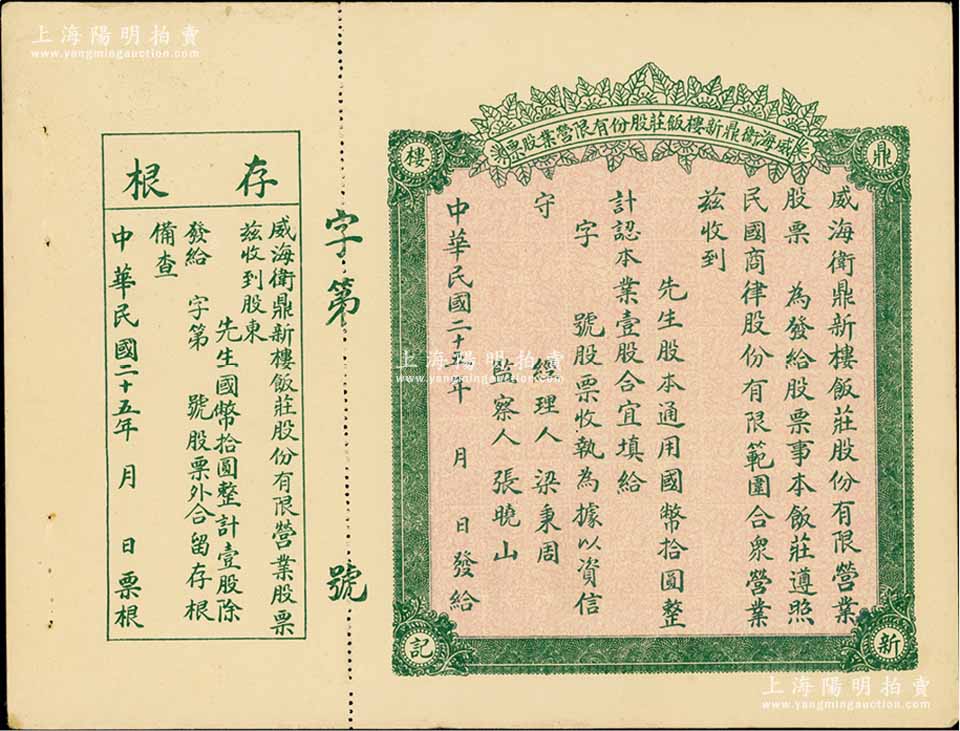 上海陽明拍賣
www.yangmingauction.com
威海衛鼎新樓飯莊股份有限營業股票
鼎
新
樓
記
威海衛鼎新樓飯莊股份有限營業
股票 為發給股票事本飯莊遵照
民國商律股份有限範圍合衆營業
茲收到
先生股本通用國幣拾圓整
計認本業壹股合宜填給
字 號股票收執為據以資信
守 經理人梁秉周
監察人張曉山
中華民國二十五年 月 日發給
字第 號
存根
威海衛鼎新樓飯莊股份有限營業股票
茲收到股東
先生國幣拾圓整計壹股除
發給 字第 號股票外合留存根
備查
中華民國二十五年 月 日票根
上海陽明拍賣
www.yangmingauction.com
上海陽明拍賣
www.yangmingauction.com